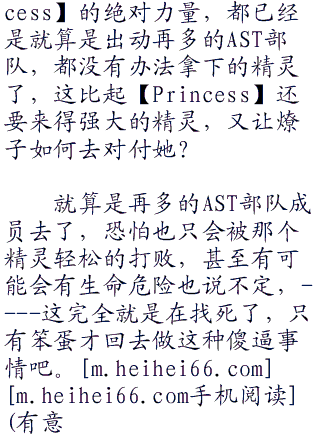 cess】的绝对力量，都已经
是就算是出动再多的AST部
队，都没有办法拿下的精灵
了，这比起【Princess】还
要来得强大的精灵，又让燎
子如何去对付她？
就算是再多的AST部队成
员去了，恐怕也只会被那个
精灵轻松的打败，甚至有可
能会有生命危险也说不定，-
---这完全就是在找死了，只
有笨蛋才回去做这种傻逼事
情吧。[m.heihei66.com]
[m.heihei66.com手机阅读]
(有意